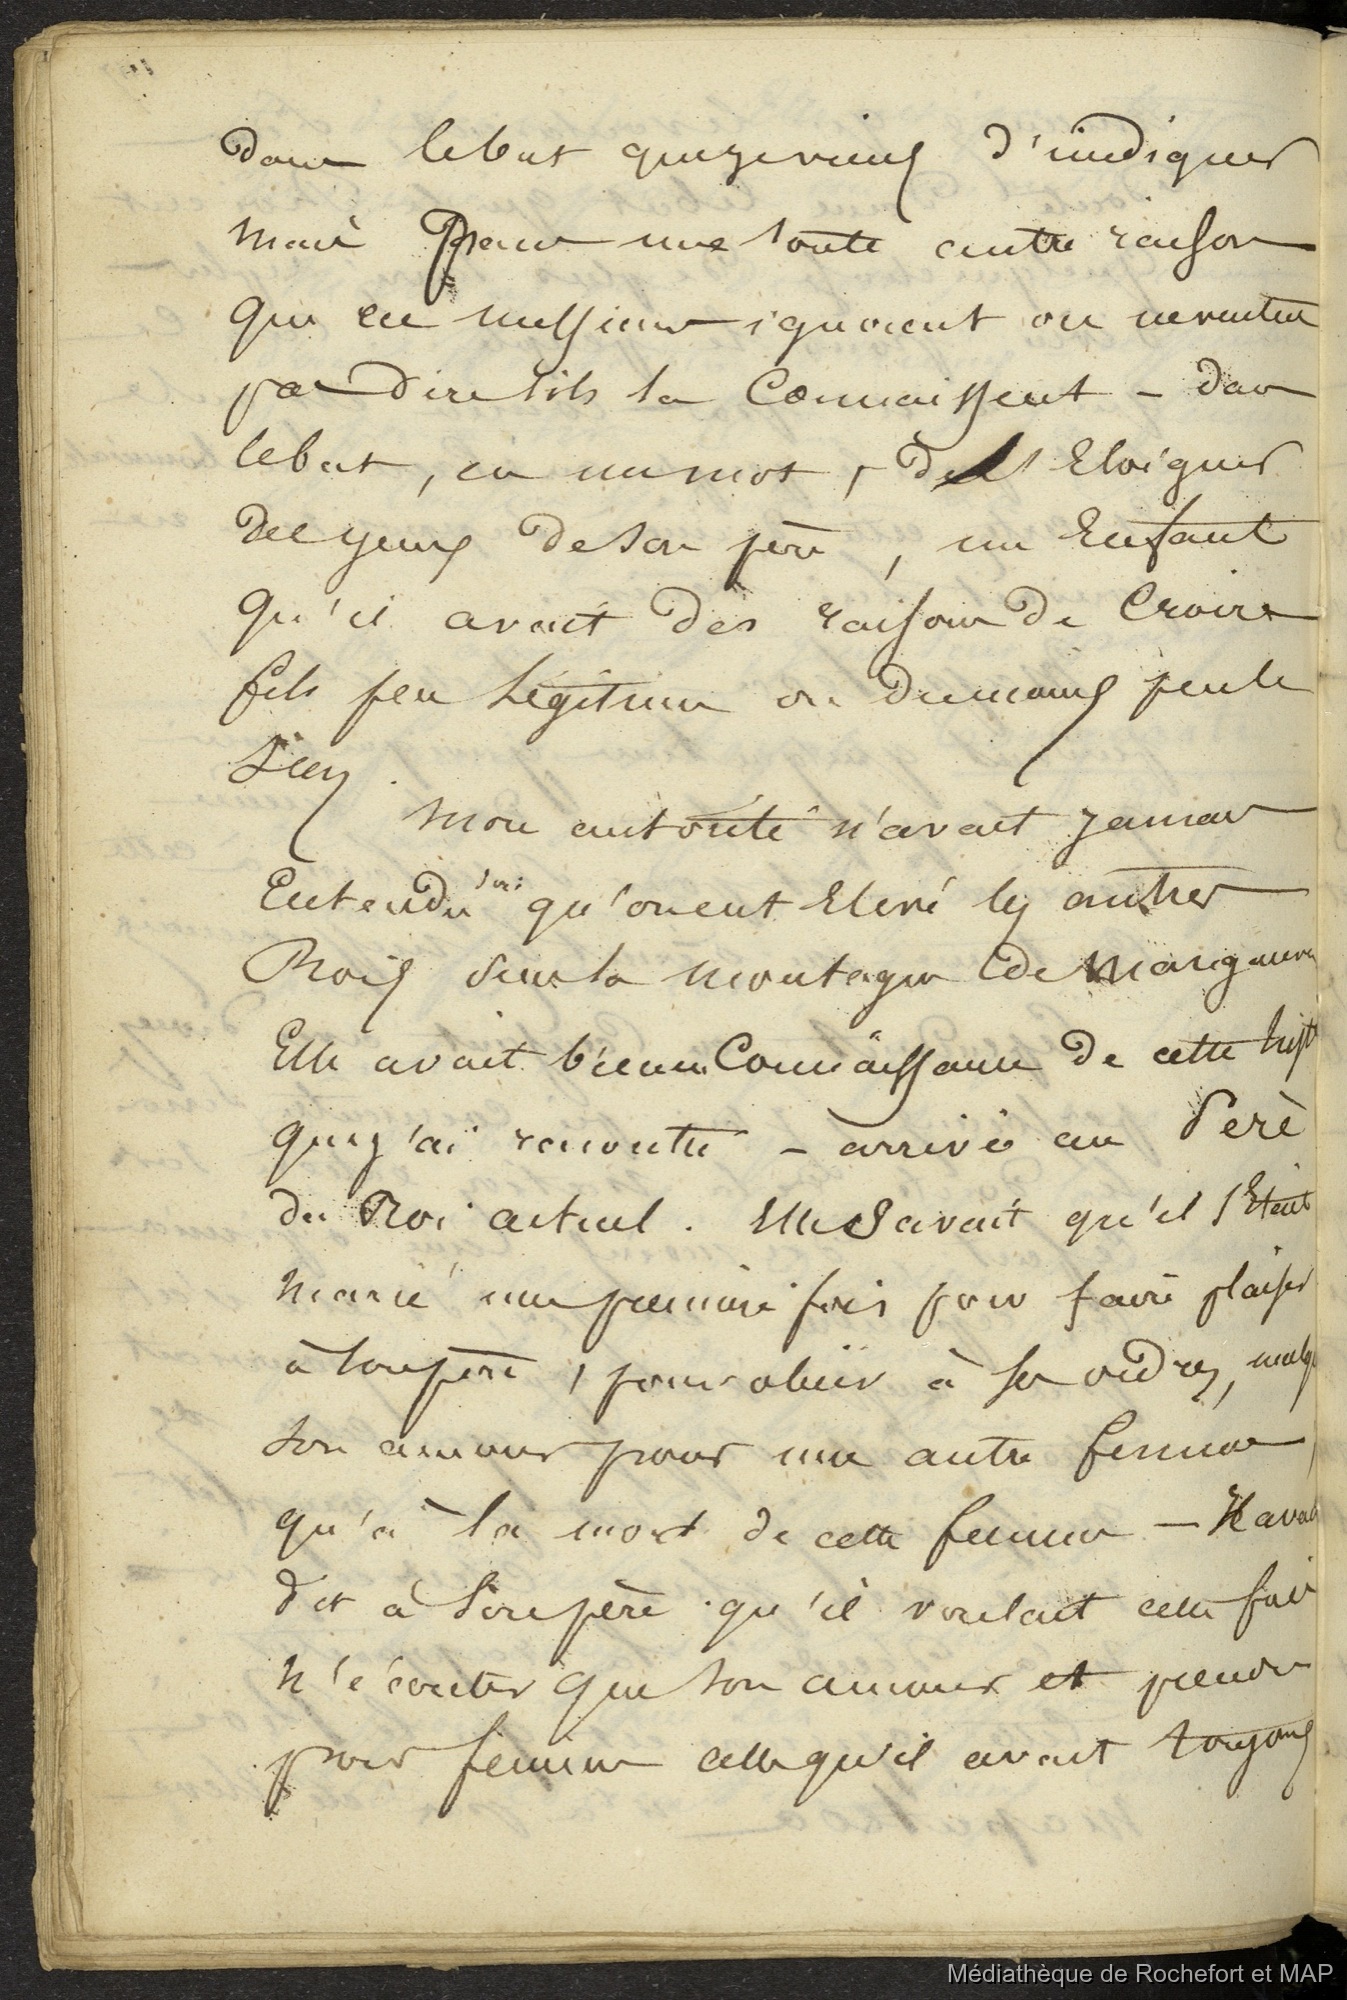 dans le but que je viens d'indiquer
mais pour une toute autre raison
que ces messieurs ignorent ou ne veulent
pas dire s'ils la connaissent - dans
le but, en un mot, de Eloigner
des yeux de son père, un Enfant
qu'il avait des raisons de Croire
fils peu légitime ou du moins peu le
sien.
Mon autorité n'avait jamais
Entendu qu'on eut Elevé les autres
Rois sur la montagne de
Elle avait bien Connaissance de cette hist
que j'ai racontée - arrivée au Père
du Roi actuel. Elle Savait qu'il s'Etait
marié une première fois pour faire plaisir
à son père, pour obéir à ses ordres, malg
son amour pour une autre femme,
qu'à la mort de cette femme - Il avait
dit à Son père qu'il voulait cette fois
n'écouter que son amour et prendre
pour femme celle qu'il avait toujours
Médiathèque de Rochefort et MAP